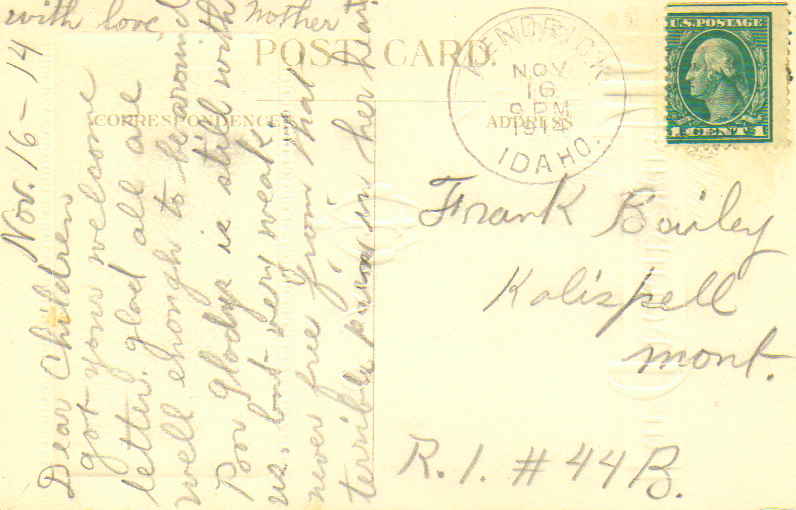 with love, Mother
POST CARD.
CORRESPONDENCE
ADDRESS
KENDRICK
NOV
16
9 PM
1914
IDAHO.
U.S. POSTAGE
1 CENT 1
Nov. 16 - 14
Dear Children
got your welcome
letter. glad all are
well enough to be around
Poor Gladys is still with
us, but very weak,
never free from that
terrible pain in her heart
Frank Bailey
Kalispell
Mont.
R. 1. # 44 B.